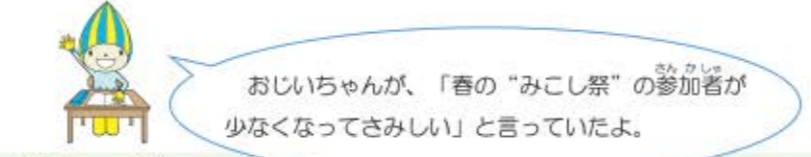 おじいちゃんが、「春の“みこし祭”の参加者が
少なくなってさみしい」と言っていたよ。